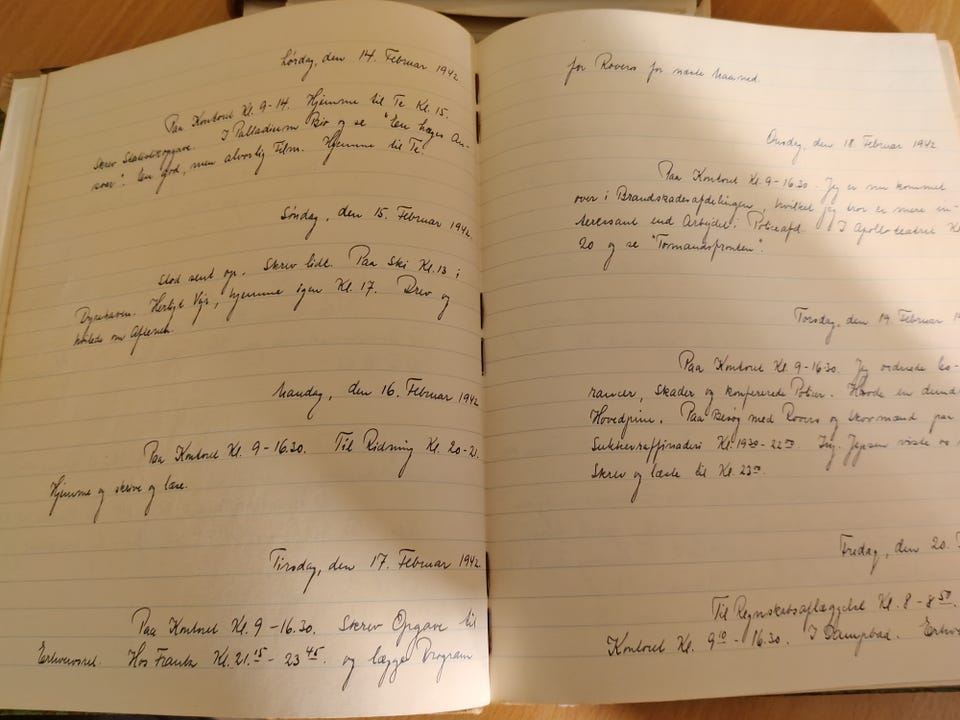 Lørdag, den 14. Februar 1942.
Paa Kontoret Kl. 9-14. Hjemme til Te Kl. 15.
Skrev Skatteopgave. I Palladium Bio og se "Een Læges An-
svar". En god, men alvorlig Film. Hjemme til Te.
Søndag, den 15. Februar 1942.
Stod sent op. Skrev lidt. Paa Ski Kl. 13 i
Dyrehaven. Herligt Vejr, hjemme igen Kl. 17. Drev og
hvilede om Aftenen.
Mandag, den 16. Februar 1942
Paa Kontoret Kl. 9-16.30. Til Ridning Kl. 20-21.
Hjemme og skrive og læse.
Tirsdag, den 17. Februar 1942.
Paa Kontoret Kl. 9-16.30. Skrev Opgave til
Erhvervsret. Hos Frantz Kl. 21.15 - 23.45. og lægge Program
for Rovers for næste Maaned.
Onsdag, den 18. Februar 1942.
Paa Kontoret Kl. 9-16.30. Jeg er nu kommet
over i Brandskadesafdelingen, hvilket jeg tror er mere in-
teressant end Arbejdet i Policeafd. I Apolloteatret Kl.
20 og se "Tormandsfronten".
Torsdag, den 19. Februar 19
Paa Kontoret Kl. 9-16.30. Jeg ordnede
skader og konfererede Policer. Havde en
Hovedpine. Paa Besøg med Rovers og paa
Sukkerraffinaderi Kl. 19.30 - 22.00 Ing. Jepsen viste os
Skrev og læste til Kl. 23.00.
Fredag, den 20.
Til Regnskabsaflæggelse Kl. 8 - 8.50.
Kontoret Kl. 9.10 - 16.30. I Dampbad.